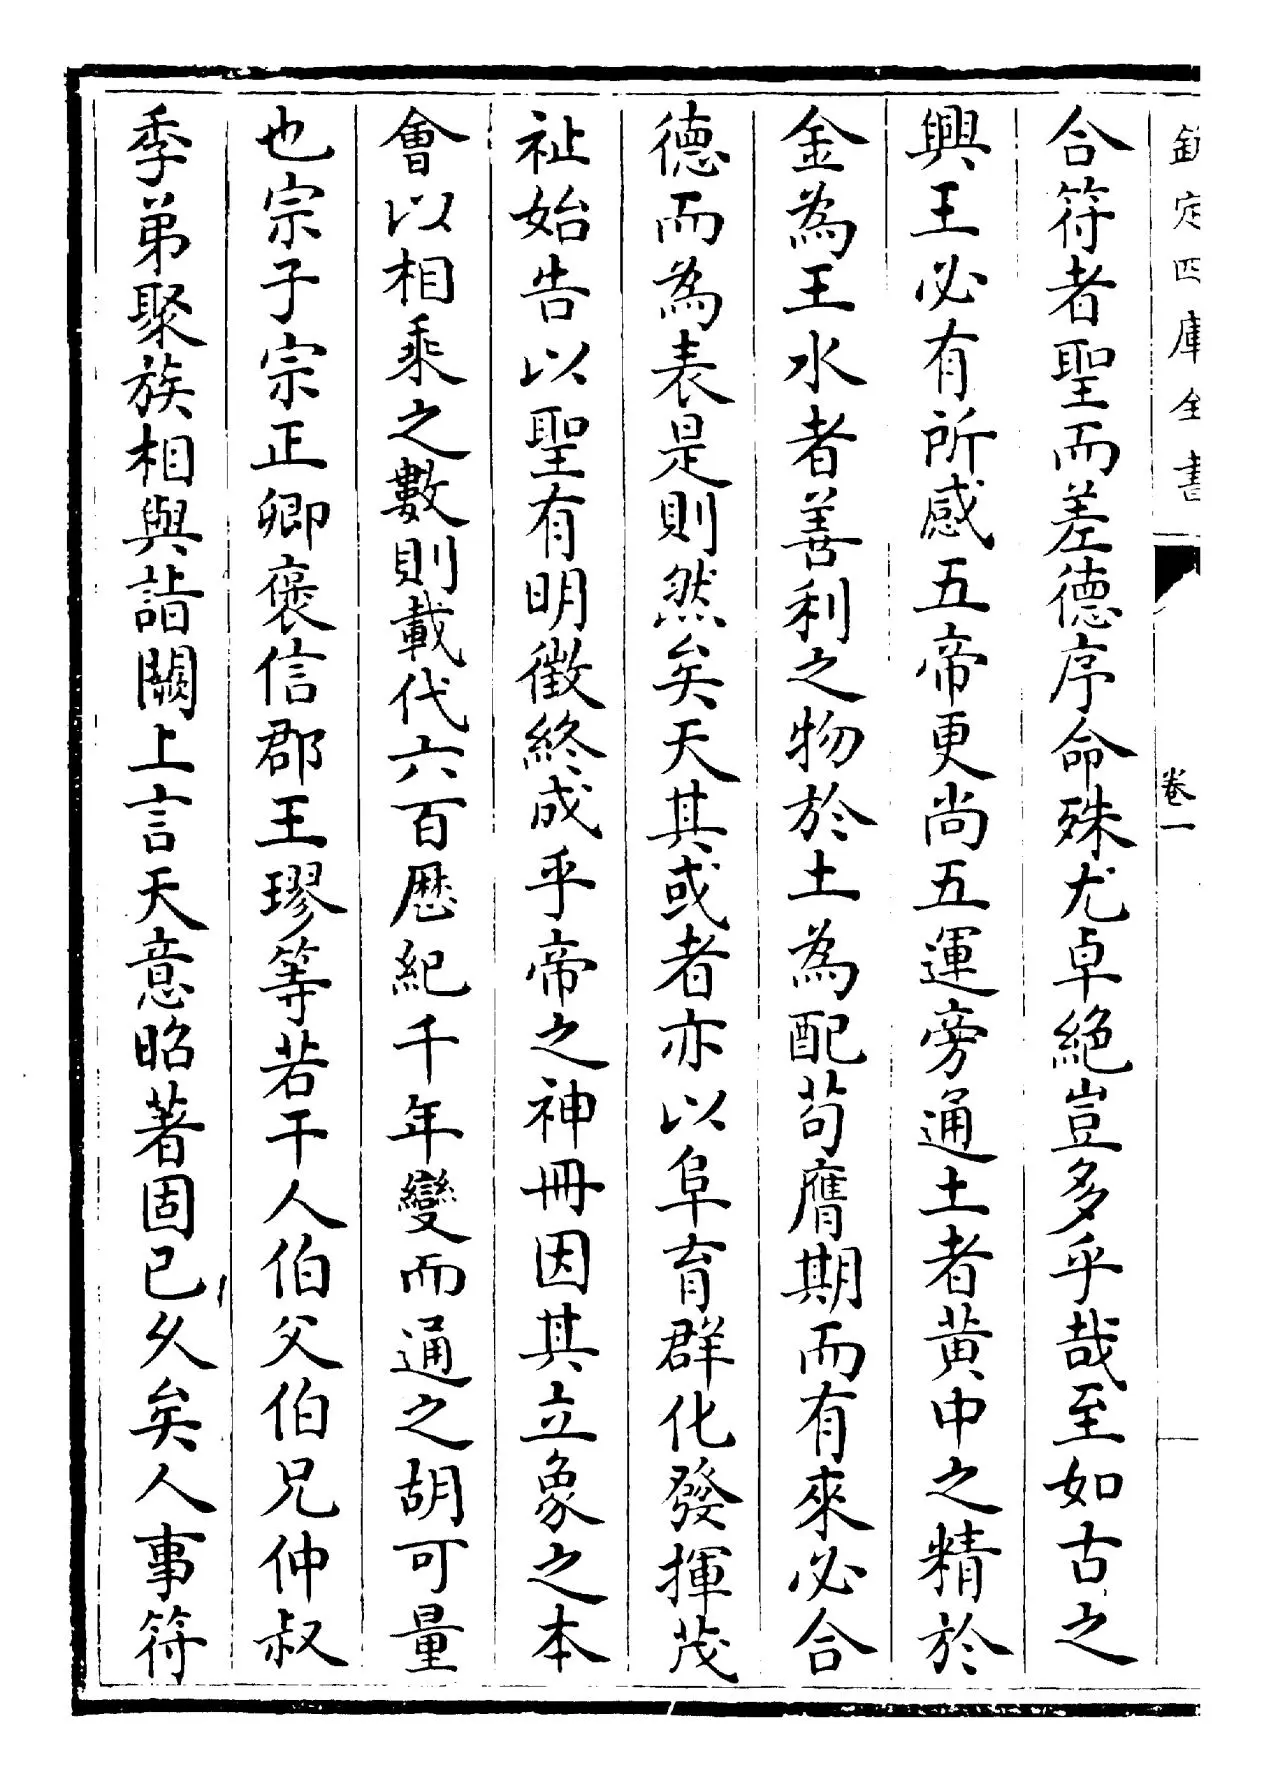 欽定四庫全書
卷一
合符者聖而差德序命殊尤卓絕豈多乎哉至如古之
興王必有所感五帝更尚五運旁通土者黃中之精於
金為王水者善利之物於土為配苟膺期而有來必合
德而為表是則然矣天其或者亦以阜育群化發揮茂
祉始告以聖有明徵終成乎帝之神冊因其立象之本
會以相乘之數則載代六百歷紀千年變而通之胡可量
也宗子宗正卿褒信郡王璆等若干人伯父伯兄仲叔
季弟聚族相與詣闕上言天意昭著固已久矣人事符